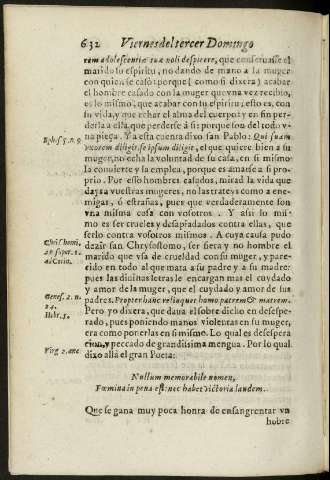 632 Viernes del tercer Domingo
rem adolescentiæ tuæ noli despicere, que conseruasse el
marido su espiritu, no dando de mano a la muger
con quien se casò: porque (como si dixera) acabar
el hombre casado con la muger que vna vez recibio,
es lo mismo, que acabar con su espiritu, esto es, con
su vida, y que echar el alma del cuerpo: y en fin per-
derla a ella, que perderse à si: porque son del todo v-
na pieça. Y a esta cuenta dixo san Pablo: Qui suam
Ephes. 5. n. 9.
vxorem diligit se ipsum diligit, el que quiere bien a su
muger, no echa la voluntad de su casa, en si mismo
la conuierte y la emplea, porque es amarse a si pro-
prio. Por esso hombres casados, mirad la vida que
days a vuestras mugeres, no las trateys como a ene-
migas, ó estrañas, pues que verdaderamente son
vna misma cosa con vosotros. Y assi lo mis-
mo es ser crueles y desapiadados contra ellas, que
serlo contra vosotros mismos. A cuya causa pudo
dezir san Chrysostomo, ser fiera y no hombre el
marido que vsa de crueldad con su muger, y pare-
cido en todo al que mata a su padre y a su madre:
pues las diuinas letras le encargan mas el cuydado
y amor de la muger, que el cuydado y amor de sus
Genes. 2. n.
24.
padres. Propter hanc relinquet homo patrem & matrem.
Pero yo dixera, que daua el sobredicho en desespe-
rado, pues poniendo manos violentas en su muger,
era como ponerlas en si mismo. Lo qual es desespera
cion, y peccado de grandissima mengua. Por lo qual
Virg. 2. ane.
dixo allà el gran Poeta:
Nullum memorabile nomen,
Fœmina in pena est: nec habet victoria laudem.
Que se gana muy poca honra de ensangrentar vn
hobre